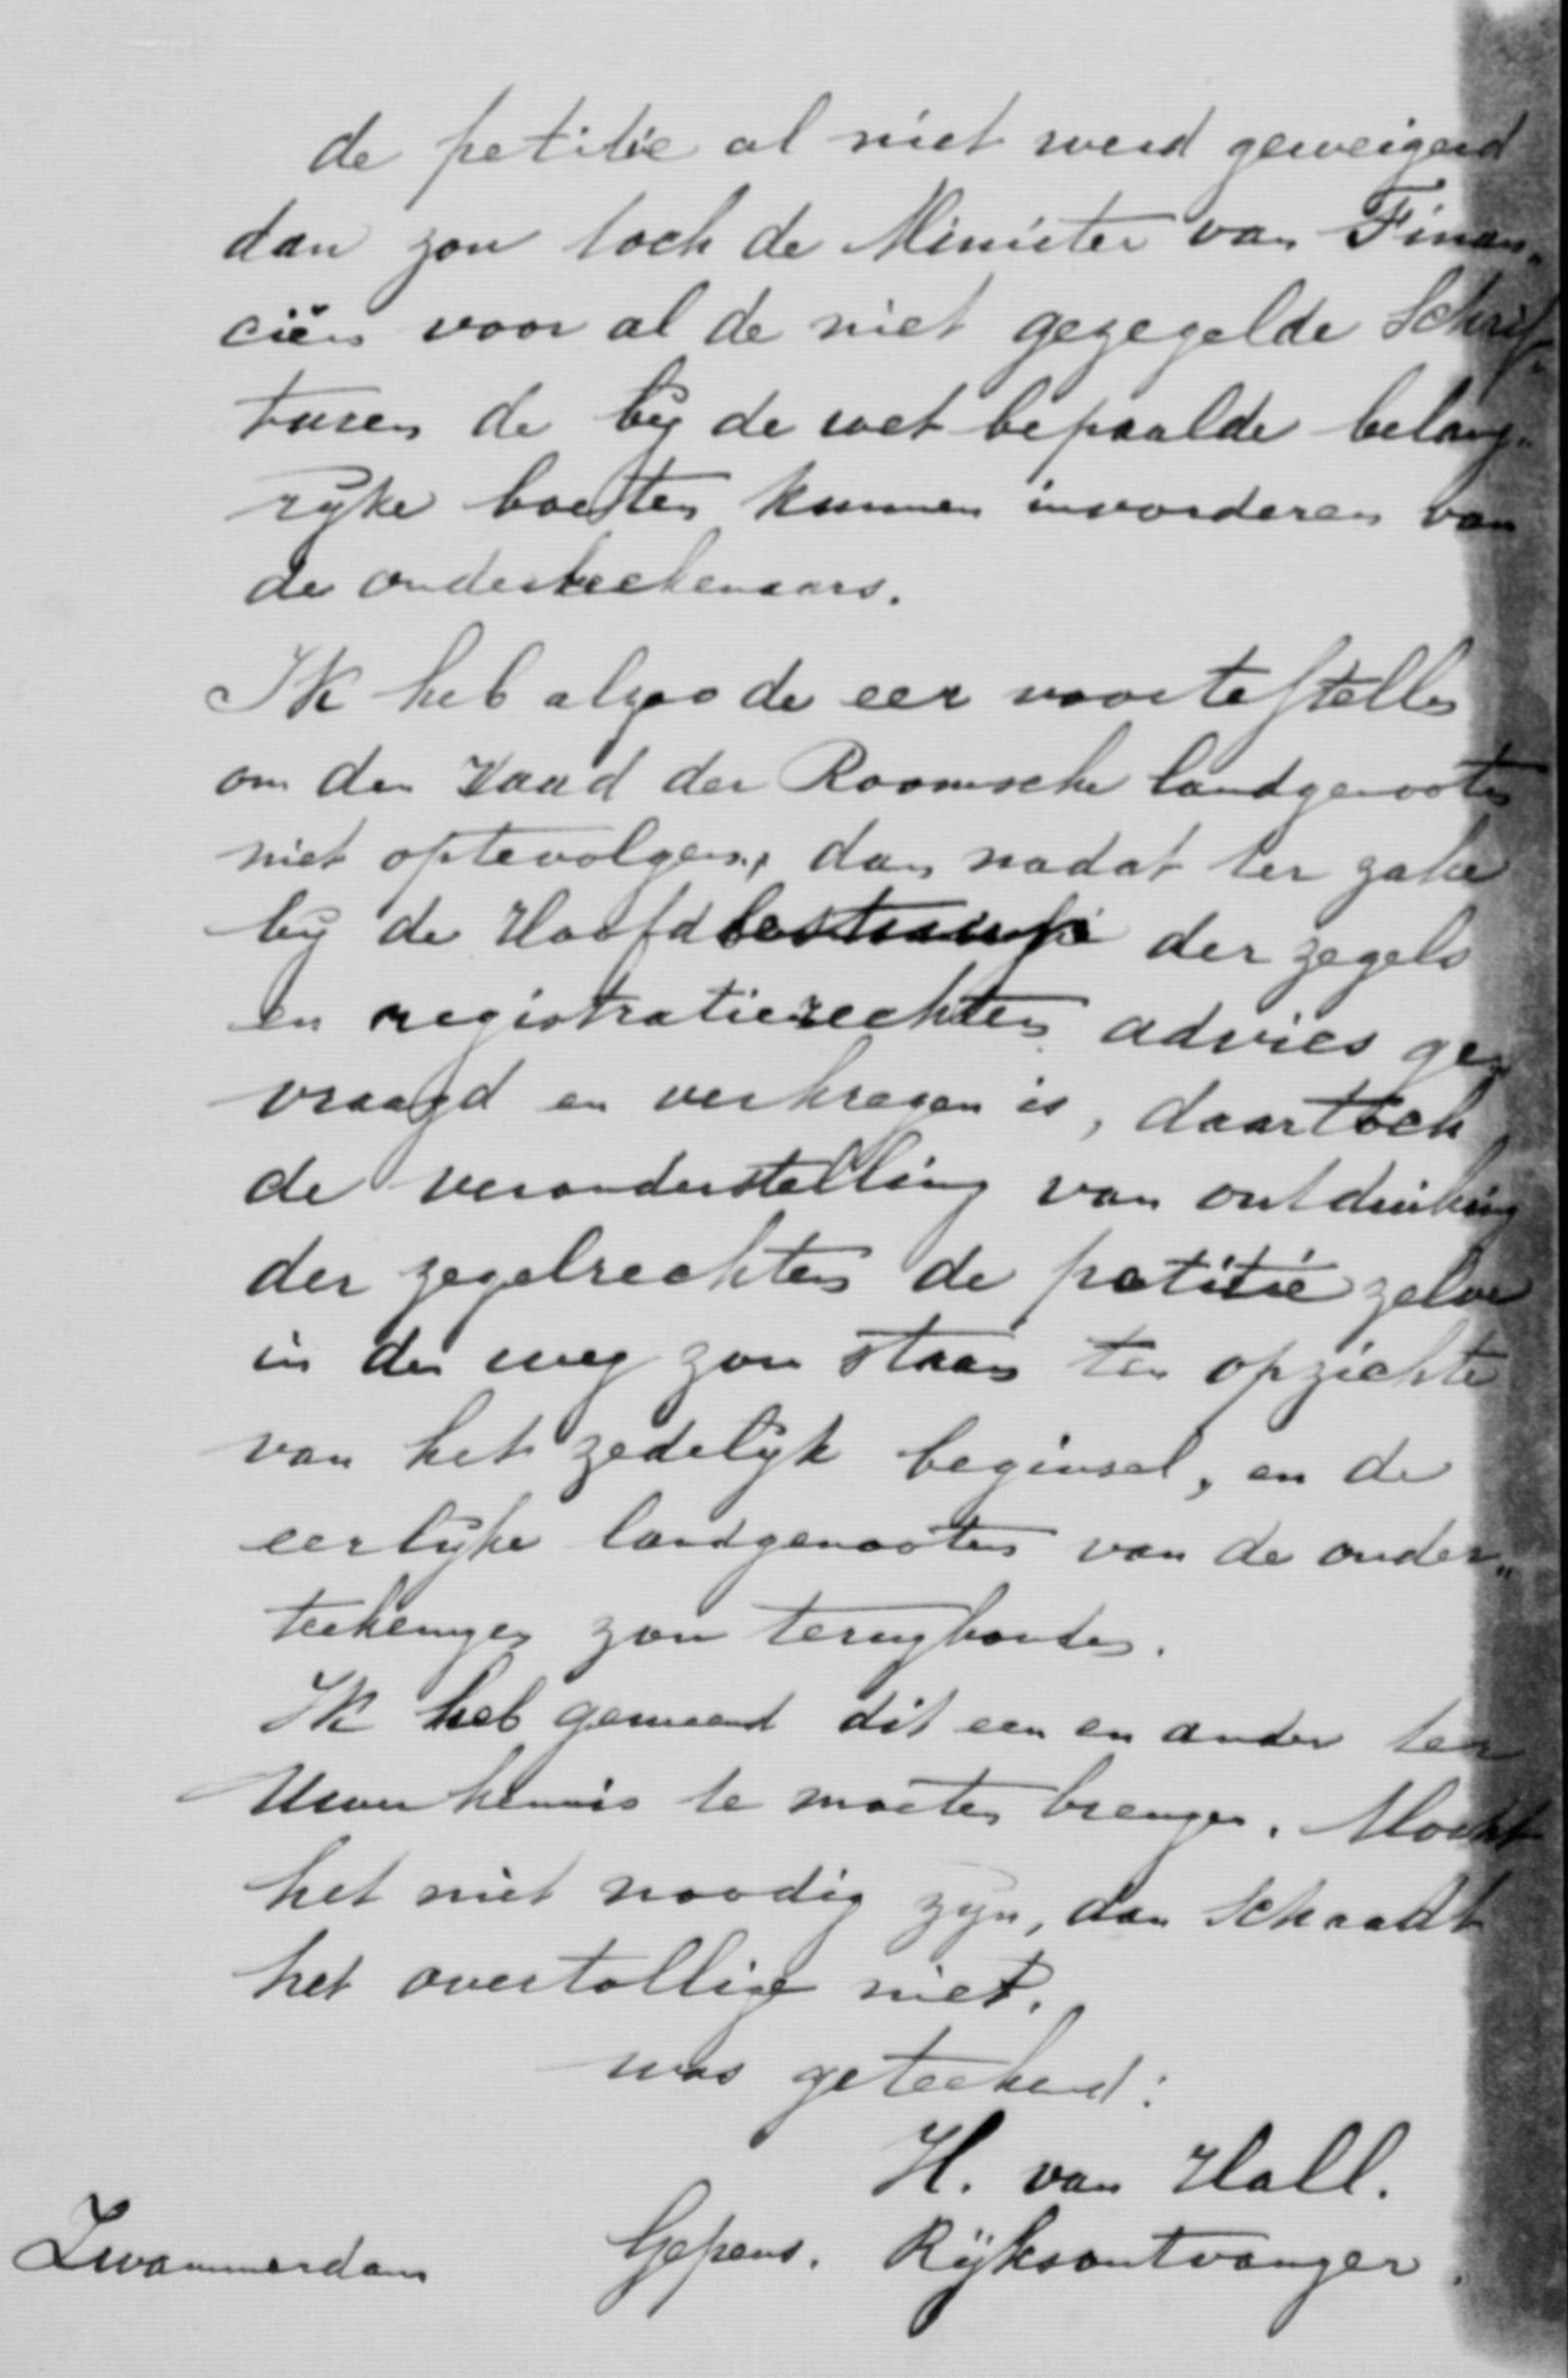 de petitie al niet werd geweigerd
dan zou toch de Minister van Finan„
ciën voor al de niet gezegelde Schrif„
turen de bij de wet bepaalde belang„
rijke boeten kunnen invorderen van
de onderteekenaars.
Ik heb alzoo de eer voortestellen
om den Raad der Roomsche landgenooten
niet optevolgen, dan nadat ter zake
bij de Hoofd der zegels
en registratierechten advies ge„
vraagd en verkregen is, daar toch
de veronderstelling van ontduiking
der zegelrechten de petitie zelve
in den weg zou staan ten opzichte
van het zedelijk beginsel, en de
eerlijke landgenooten van de onder„
teekeningen zou terughouden.
Ik heb gemeend dit een en ander ter
Uwer kennis te moeten brengen. Mocht
het niet noodig zijn, dan Schaadt
het overtollige niet.
was geteekend:
H. van Hall.
Zwammerdam Gepens. Rijksontvanger.